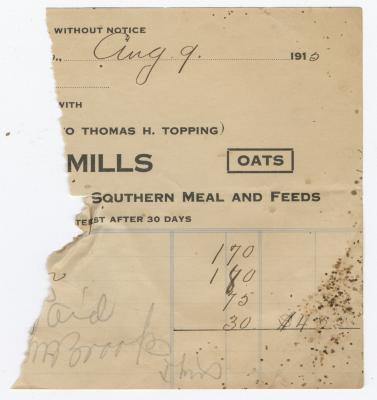 WITHOUT NOTICE
Aug 9. 1915
WITH
O THOMAS H. TOPPING)
MILLS OATS
SOUTHERN MEAL AND FEEDS
TEREST AFTER 30 DAYS
1 70
1 80
75
30 $4
Paid